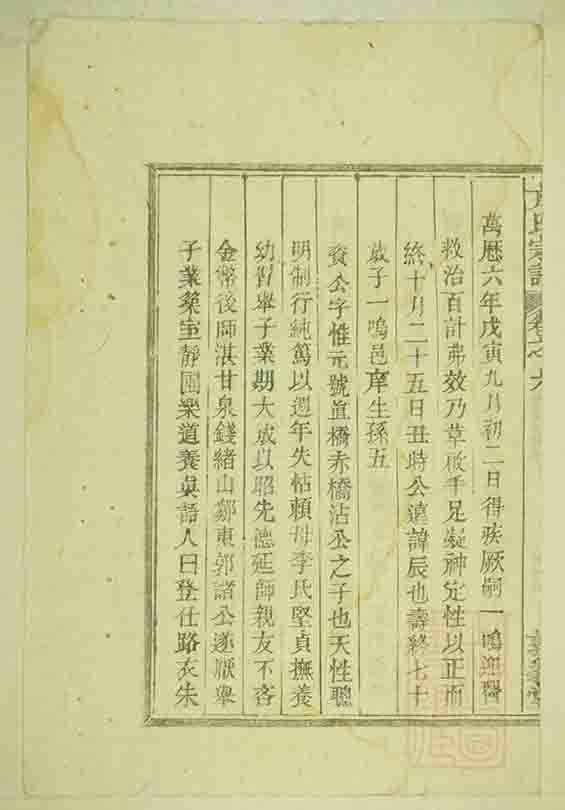 氏宗譜 卷之六
萬曆六年戊寅九月初二日得疾厥嗣一鳴迎醫
救治百計弗效乃草啟手足凝神定性以正而
終十月二十五日丑時公遠諱辰也壽終七十
歲子一鳴邑庠生孫五
資公字惟元號直橋赤橋沾公之子也天性聰
明制行純篤以週年失怙賴母李氏堅貞撫養
幼習舉子業期大成以昭先德延師親友不吝
金幣後師湛甘泉錢緒山鄒東郭諸公遂厭舉
子業築室靜園樂道養真語人曰登仕路衣朱